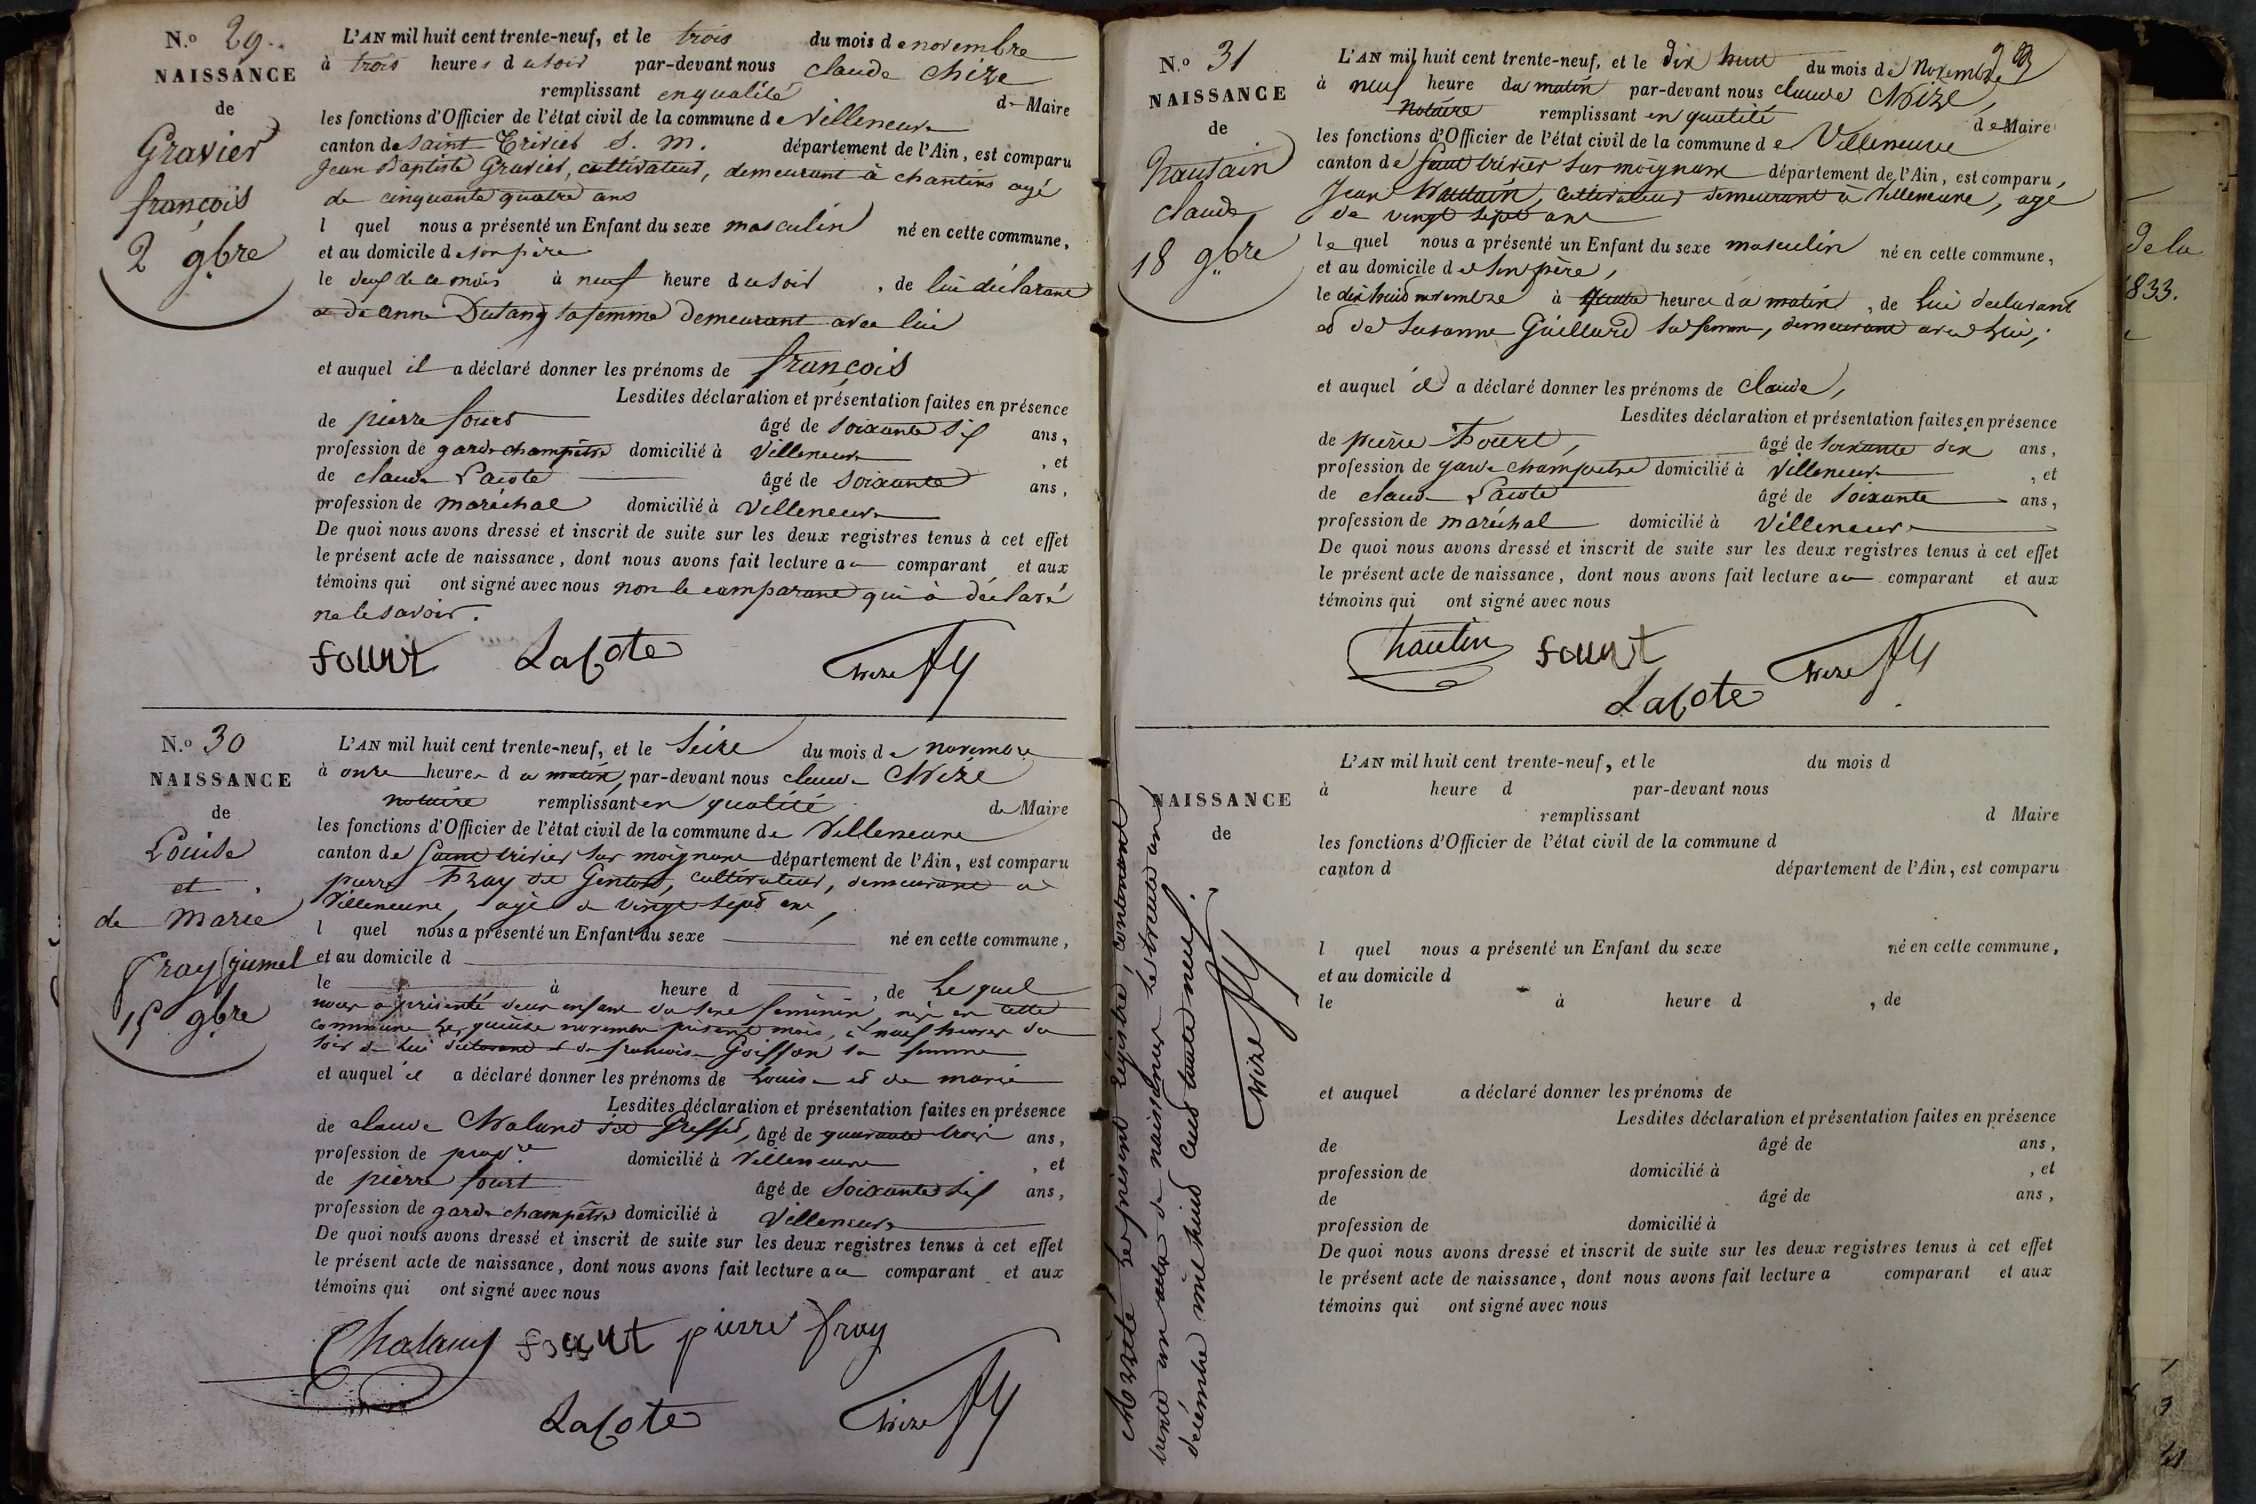 N.o 29.
NAISSANCE
de
Gravier
françois
2 9bre
L'AN mil huit cent trente-neuf, et le trois du mois de novembre
à trois heures du soir par-devant nous claude Chize
remplissant en qualité de Maire
les fonctions d'Officier de l'état civil de la commune de Villeneuve
canton de saint Trivier S. M. département de l'Ain, est comparu
Jean Baptiste Gravier, cultivateur, demeurant à chantins agé
de cinquante quatre ans
l quel nous a présenté un Enfant du sexe masculin né en cette commune,
et au domicile de son père
le deux de ce mois à neuf heure du soir, de lui déclarant
et de anne Dutang sa femme demeurant avec lui
et auquel il a déclaré donner les prénoms de françois
Lesdites déclaration et présentation faites en présence
de pierre fourt âgé de soixante dix ans,
profession de garde champêtre domicilié à Villeneuve, et
de claude Lacote âgé de soixante ans,
profession de maréchal domicilié à Villeneuve
De quoi nous avons dressé et inscrit de suite sur les deux registres tenus à cet effet
le présent acte de naissance, dont nous avons fait lecture au comparant et aux
témoins qui ont signé avec nous non le comparant qui à déclaré
ne le savoir.
fourt Lacote Chize
N.o 30
NAISSANCE
de
Louise
et
de Marie
fray gumel
15 9bre
L'AN mil huit cent trente-neuf, et le Seize du mois de novembre
à onze heures du matin, par-devant nous claude Chize
notaire remplissant en qualité de Maire
les fonctions d'Officier de l'état civil de la commune de Villeneuve
canton de Saint trivier sur moignans département de l'Ain, est comparu
pierre fray dit Genton, cultivateur, demeurant a
Villeneuve, agé de vingt sept ans,
l quel nous a présenté un Enfant du sexe né en cette commune,
et au domicile d
le à heure d, de Le quel
nous a présenté deux enfant du sexe féminin, née en cette
commune Le quinze novembre présent mois, à neuf heures du
soir de Lui déclarant et de francoise Goiffon sa femme
et auquel il a déclaré donner les prénoms de Louise et de marie
Lesdites déclaration et présentation faites en présence
de claude Chaland dit Greffet, âgé de quarante trois ans,
profession de prop.re domicilié à Villeneuve, et
de pierre fourt âgé de soixante dix ans,
profession de garde champêtre domicilié à Villeneuve
De quoi nous avons dressé et inscrit de suite sur les deux registres tenus à cet effet
le présent acte de naissance, dont nous avons fait lecture au comparant et aux
témoins qui ont signé avec nous
Chaland fourt pierre fray
Lacote Chize
Arreté Le présent régistre, contenant
trente un actes de naissances Le trente un
décembre mil huit cent trente neuf.
Chize
N.o 31
NAISSANCE
de
hautain
claude
18 9bre
L'AN mil huit cent trente-neuf, et le dix huit du mois de Novembre
à neuf heure du matin par-devant nous claude Chize,
Notaire remplissant en qualité de Maire
les fonctions d'Officier de l'état civil de la commune de Villeneuve
canton de Saint trivier sur moignans département de l'Ain, est comparu,
Jean hautain, cultivateur demeurant à Villeneuve, agé
de vingt sept ans
le quel nous a présenté un Enfant du sexe masculin né en cette commune,
et au domicile de son père,
le dix huit novembre à quatre heures du matin, de Lui déclarant
et de Susanne Guillard sa femme, demeurant avec Lui;
et auquel il a déclaré donner les prénoms de claude,
Lesdites déclaration et présentation faites en présence
de pierre fourt, âgé de soixante dix ans,
profession de garde champetre domicilié à Villeneuve, et
de claude Lacote âgé de soixante ans,
profession de maréchal domicilié à Villeneuve
De quoi nous avons dressé et inscrit de suite sur les deux registres tenus à cet effet
le présent acte de naissance, dont nous avons fait lecture au comparant et aux
témoins qui ont signé avec nous
hautin fourt Chize
Lacote
NAISSANCE
de
L'AN mil huit cent trente-neuf, et le du mois d
à heure d par-devant nous
remplissant d Maire
les fonctions d'Officier de l'état civil de la commune d
canton d département de l'Ain, est comparu
l quel nous a présenté un Enfant du sexe né en cette commune,
et au domicile d
le à heure d, de
et auquel a déclaré donner les prénoms de
Lesdites déclaration et présentation faites en présence
de âgé de ans,
profession de domicilié à, et
de âgé de ans,
profession de domicilié à
De quoi nous avons dressé et inscrit de suite sur les deux registres tenus à cet effet
le présent acte de naissance, dont nous avons fait lecture a comparant et aux
témoins qui ont signé avec nous
de la
1833.